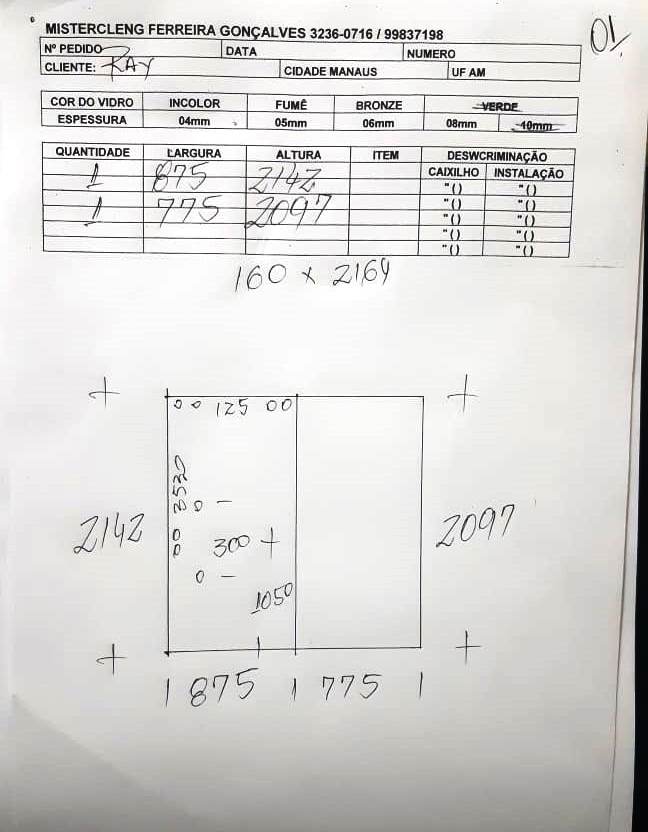 01
MISTERCLENG FERREIRA GONÇALVES 3236-0716 / 99837198
Nº PEDIDO DATA NUMERO
CLIENTE: RAY CIDADE MANAUS UF AM
COR DO VIDRO INCOLOR FUMÊ BRONZE VERDE
ESPESSURA 04mm 05mm 06mm 08mm 10mm
QUANTIDADE LARGURA ALTURA ITEM DESWCRIMINAÇÃO
CAIXILHO INSTALAÇÃO
1 875 2142 "() "()
1 775 2097 "() "()
"() "()
"() "()
"() "()
160 x 2164
125
2142
300
2097
1050
875 775